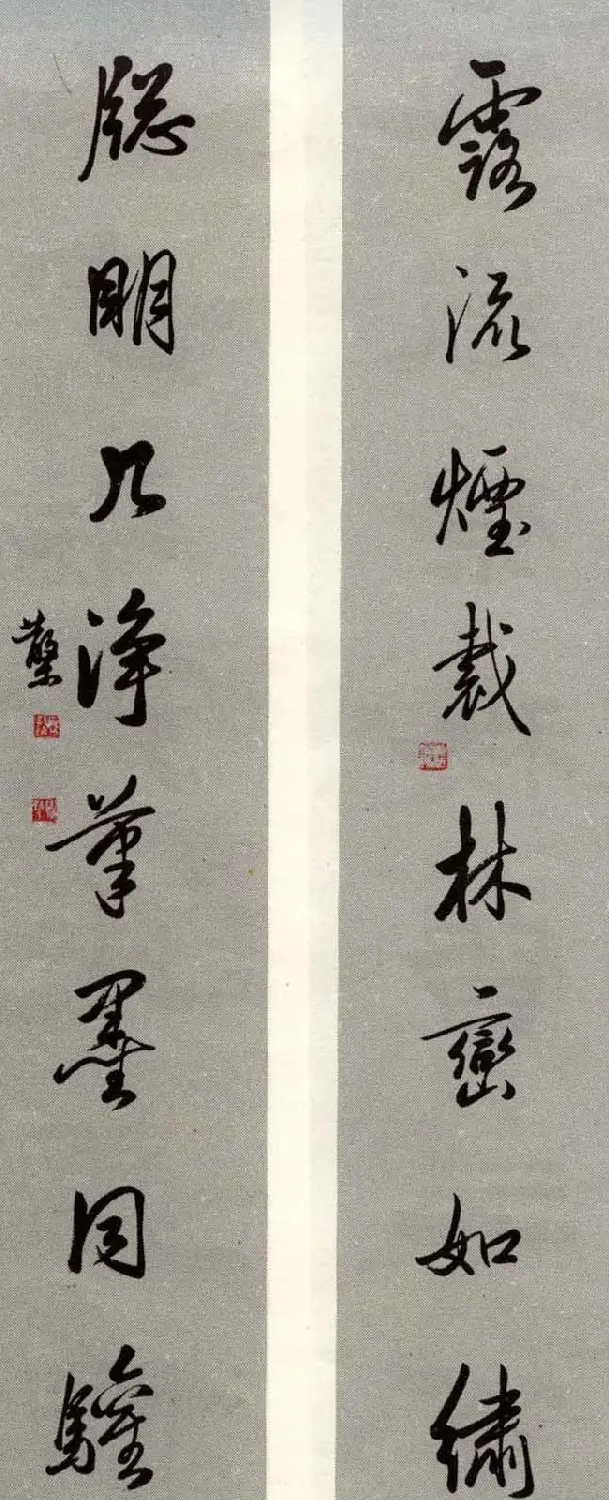 露流煙裁林巒如繡
牕明几淨筆墨同驩